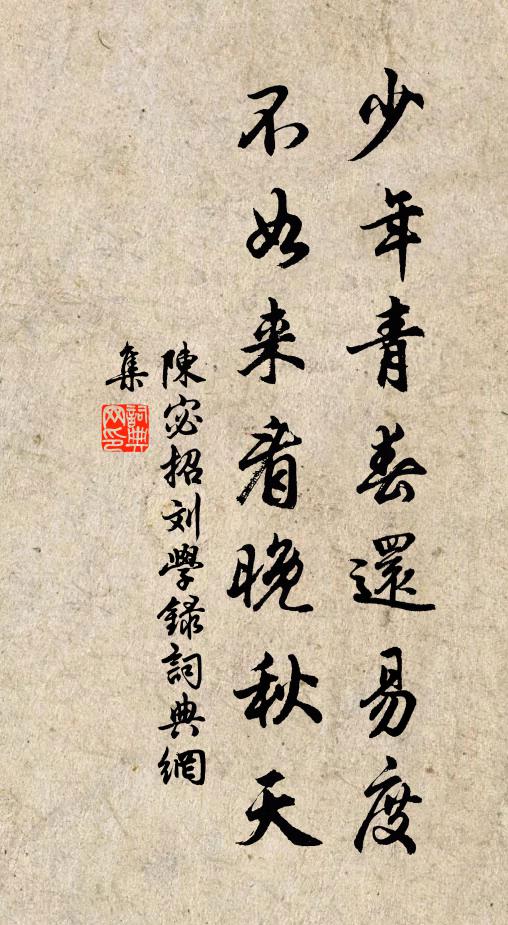 少年青春還易度
不如来看晚秋天
陳宓招刘學録詞典網
集
詞典
网印